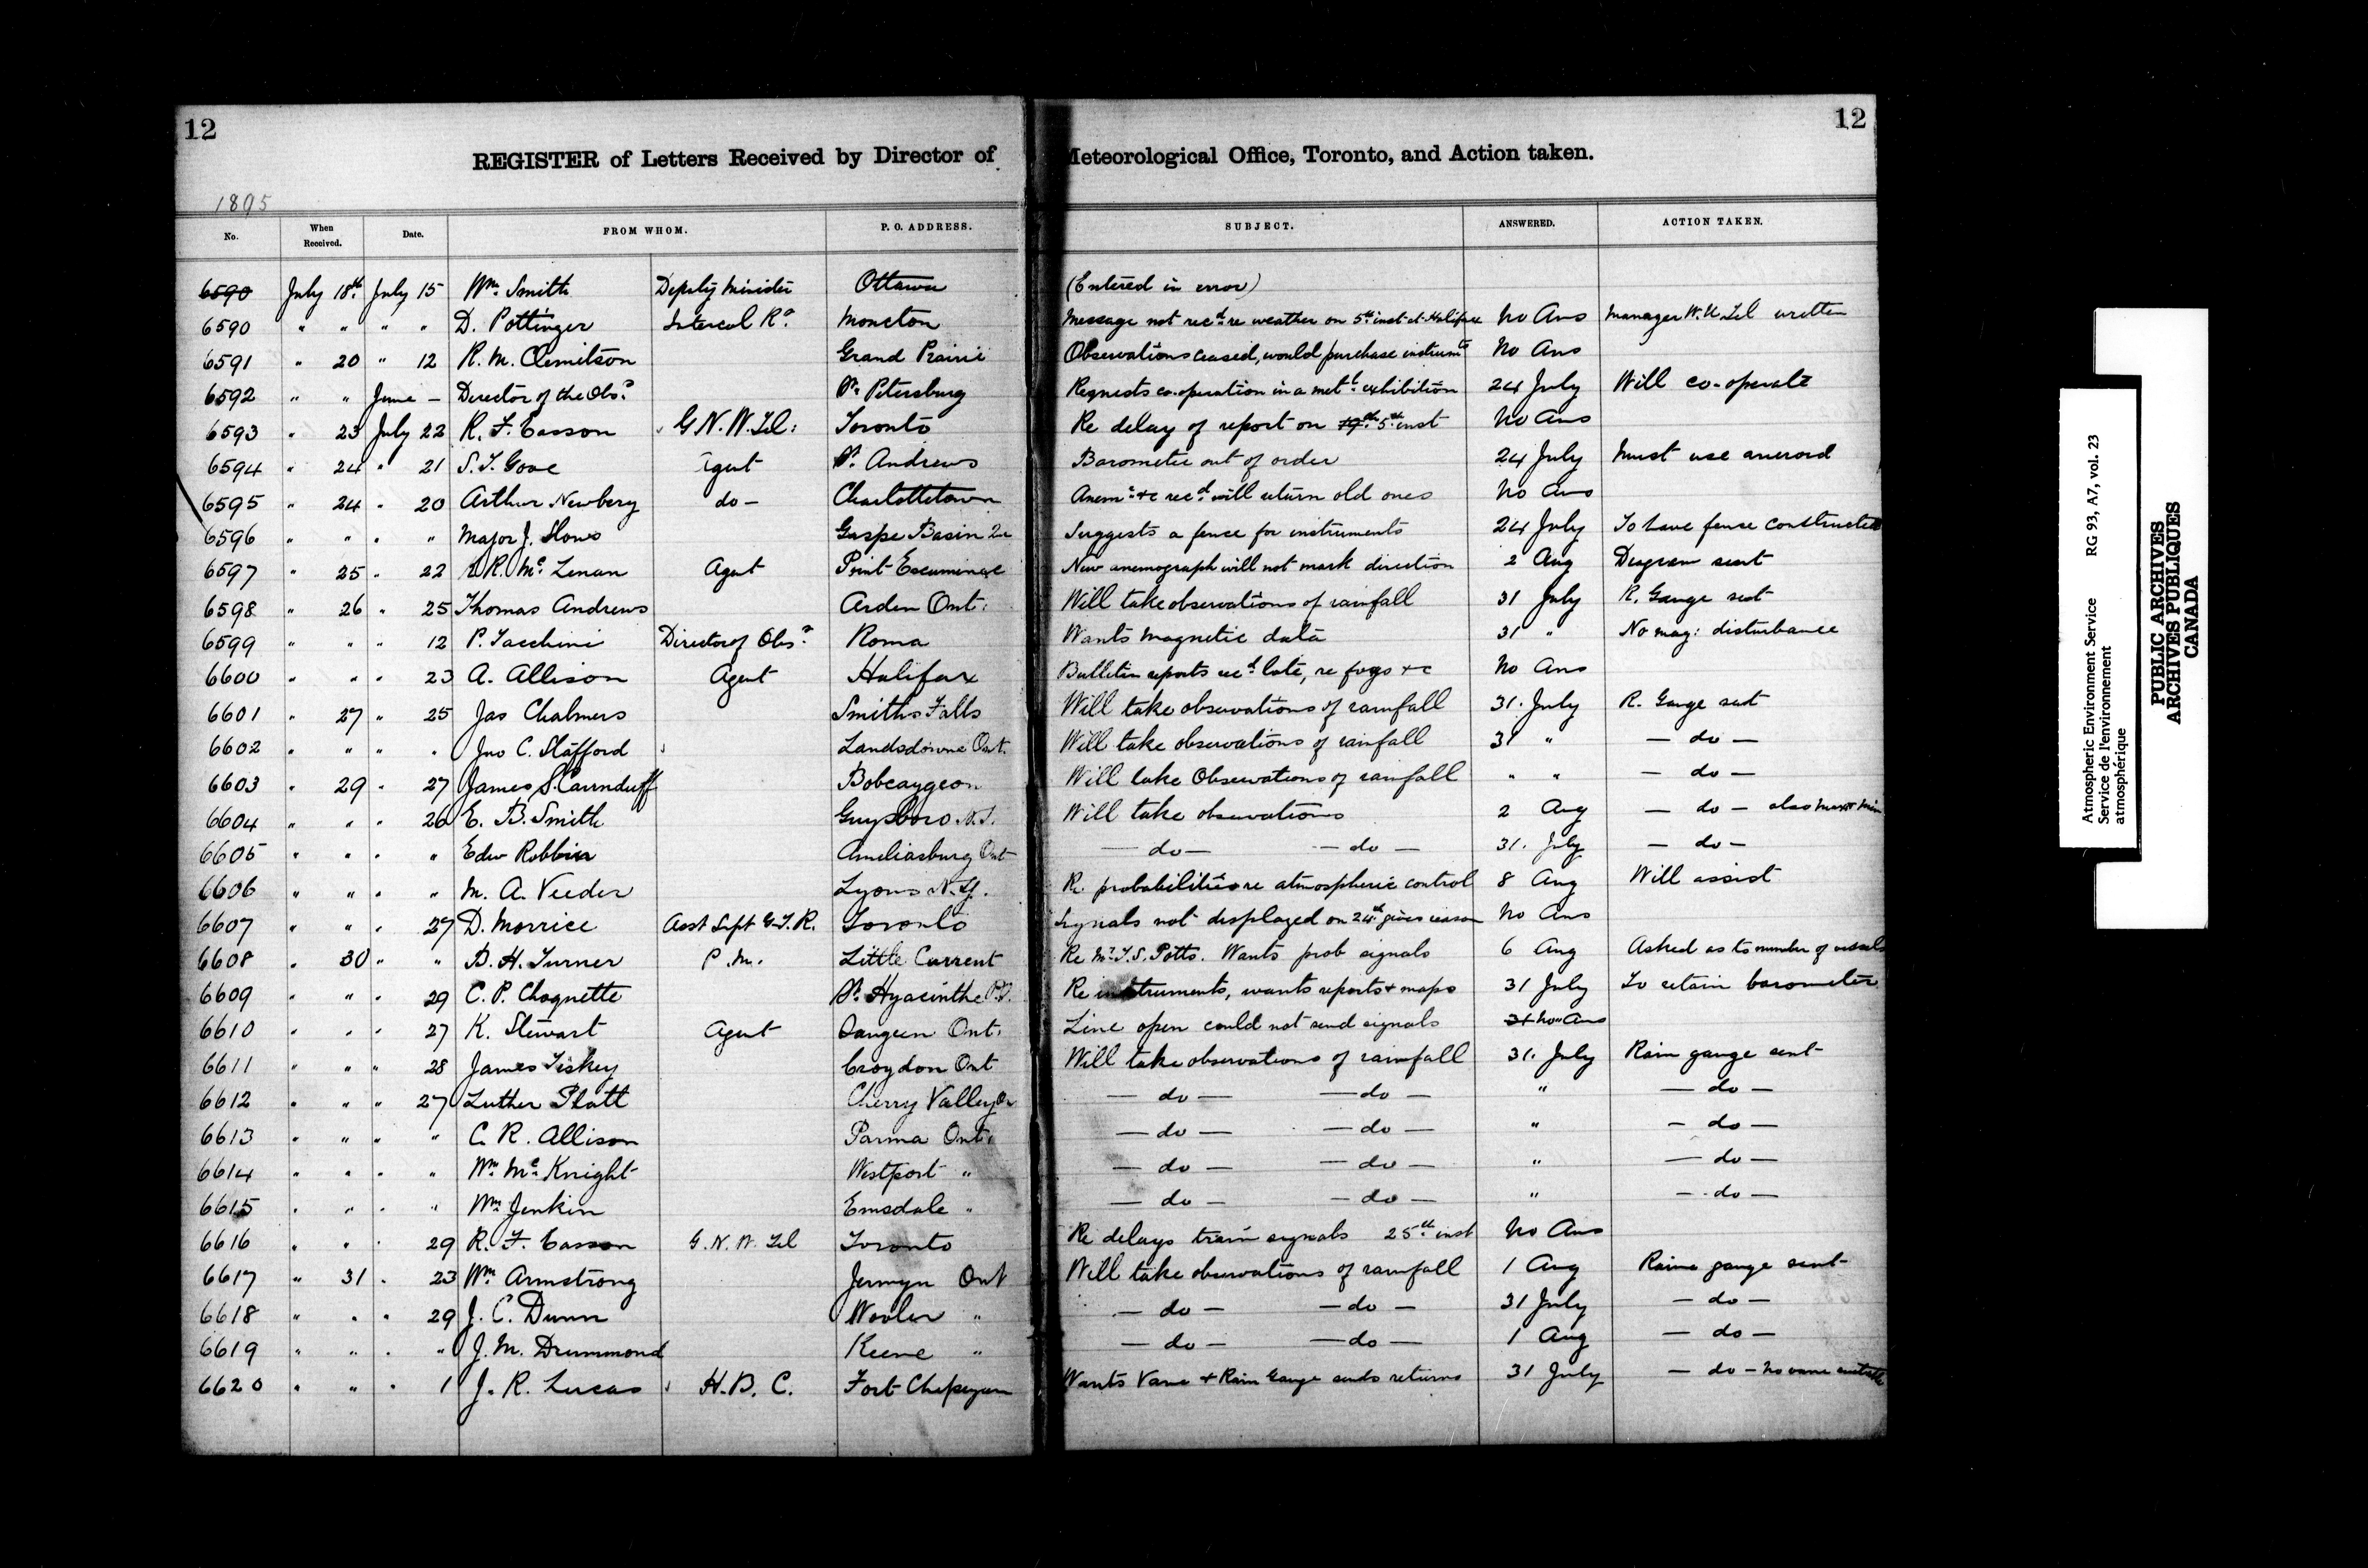 12
12
REGISTER of Letters Received by Director of Meteorological Office, Toronto, and Action taken.
1895
No. When Received. Date. FROM WHOM. P. O. ADDRESS. SUBJECT. ANSWERED. ACTION TAKEN.
6590 July 18th July 15 Wm Smith Deputy Minister Ottawa (Entered in error)
6590 " " " " D. Pottinger Intercol Ry Moncton Message not recd re weather on 5th inst at Halifax No Ans Manager W.U. Tel written
6591 " 20 " 12 R. M. Clemitson Grand Prairie Observations ceased, would purchase instrumts No Ans
6592 " " June — Director of the Obsy St. Petersburg Requests co-operation in a metl exhibition 24 July Will co-operate
6593 " 23 July 22 R. F. Easson G. N. W. Tel: Toronto Re delay of report on 19th 5th inst No Ans
6594 " 24 " 21 S. T. Gove Agent St. Andrews Barometer out of order 24 July Must use aneroid
6595 " 24 " 20 Arthur Newbery do — Charlottetown Anemr &c recd will return old ones No Ans
6596 " " " " Major J. Slous Gaspe Basin Que Suggests a fence for instruments 24 July To have fence constructed
6597 " 25 " 22 R. McLenan Agent Point Escuminac New anemograph will not mark direction 2 Aug Diagram sent
6598 " 26 " 25 Thomas Andrews Arden Ont: Will take observations of rainfall 31 July R. Gauge sent
6599 " " " 12 P. Tacchini Director of Obsy Roma Wants magnetic data 31 " No mag: disturbance
6600 " " " 23 A. Allison Agent Halifax Bulletin reports recd late, re fogs &c No Ans
6601 " 27 " 25 Jas Chalmers Smiths Falls Will take observations of rainfall 31. July R. Gauge sent
6602 " " " " Jno C. Stafford Landsdowne Ont. Will take observations of rainfall 31 " — do —
6603 " 29 " 27 James S. Cairnduff Bobcaygeon Will take Observations of rainfall " " — do —
6604 " " " 26 E. B. Smith Guysboro N.S. Will take observations 2 Aug — do — also max & min
6605 " " " " Edw Robbin Ameliasburg Ont — do — — do — 31. July — do —
6606 " " " " M. A. Veeder Lyons N.Y. Re probabilities re atmospheric control 8 Aug Will assist
6607 " " " 27 D. Morrice Asst Supt G.T.R. Toronto Signals not displayed on 24th gives reason No Ans
6608 " 30 " " B. H. Turner P. M. Little Current Re Mr T. S. Potts. Wants prob signals 6 Aug Asked as to number of vessels
6609 " " " 29 C. P. Choquette St. Hyacinthe P.Q. Re instruments, wants reports & maps 31 July To retain barometer
6610 " " " 27 K. Stewart Agent Saugeen Ont. Line open could not send signals 31 No Ans
6611 " " " 28 James Tiskey Croydon Ont Will take observations of rainfall 31. July Rain gauge sent
6612 " " " 27 Luther Platt Cherry Valley On — do — — do — " — do —
6613 " " " " C. R. Allison Parma Ont. — do — — do — " — do —
6614 " " " " Wm McKnight Westport " — do — — do — " — do —
6615 " " " " Wm Jenkin Emsdale " — do — — do — " — do —
6616 " " " 29 R. F. Easson G. N. W. Tel Toronto Re delays train signals 25th inst No Ans
6617 " 31 " 23 Wm Armstrong Jermyn Ont Will take observations of rainfall 1 Aug Raine gauge sent
6618 " " " 29 J. C. Dunn Wooler " — do — — do — 31 July — do —
6619 " " " " J. M. Drummond Keene " — do — — do — 1 Aug — do —
6620 " " " 1 J. R. Lucas H. B. C. Fort Chepeyan Wants Vane & Rain Gauge sends returns 31 July — do — No vane
Atmospheric Environment Service RG 93, A7, vol. 23
Service de l'environnement
atmosphérique
PUBLIC ARCHIVES
ARCHIVES PUBLIQUES
CANADA